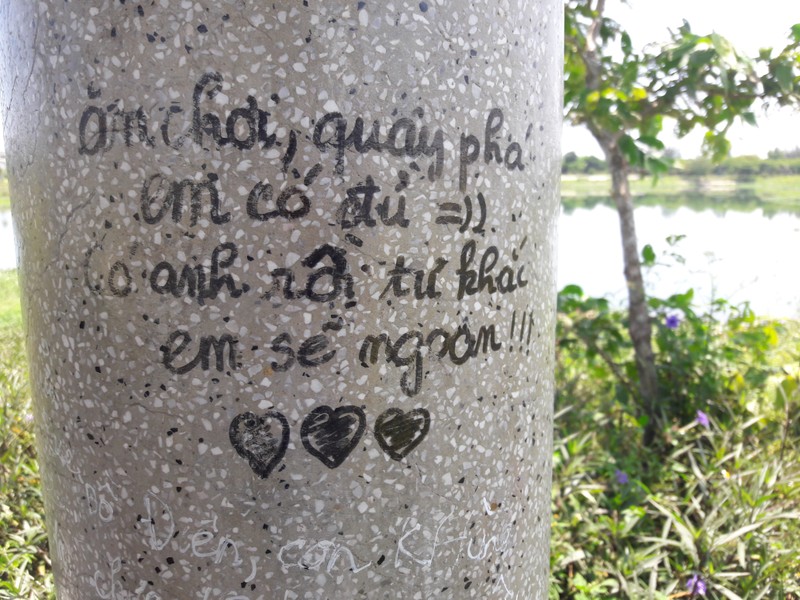 ăn chơi, quậy phá
em có đủ =))
Có anh rồi tự khắc
em sẽ ngoan!!!
Điên, con